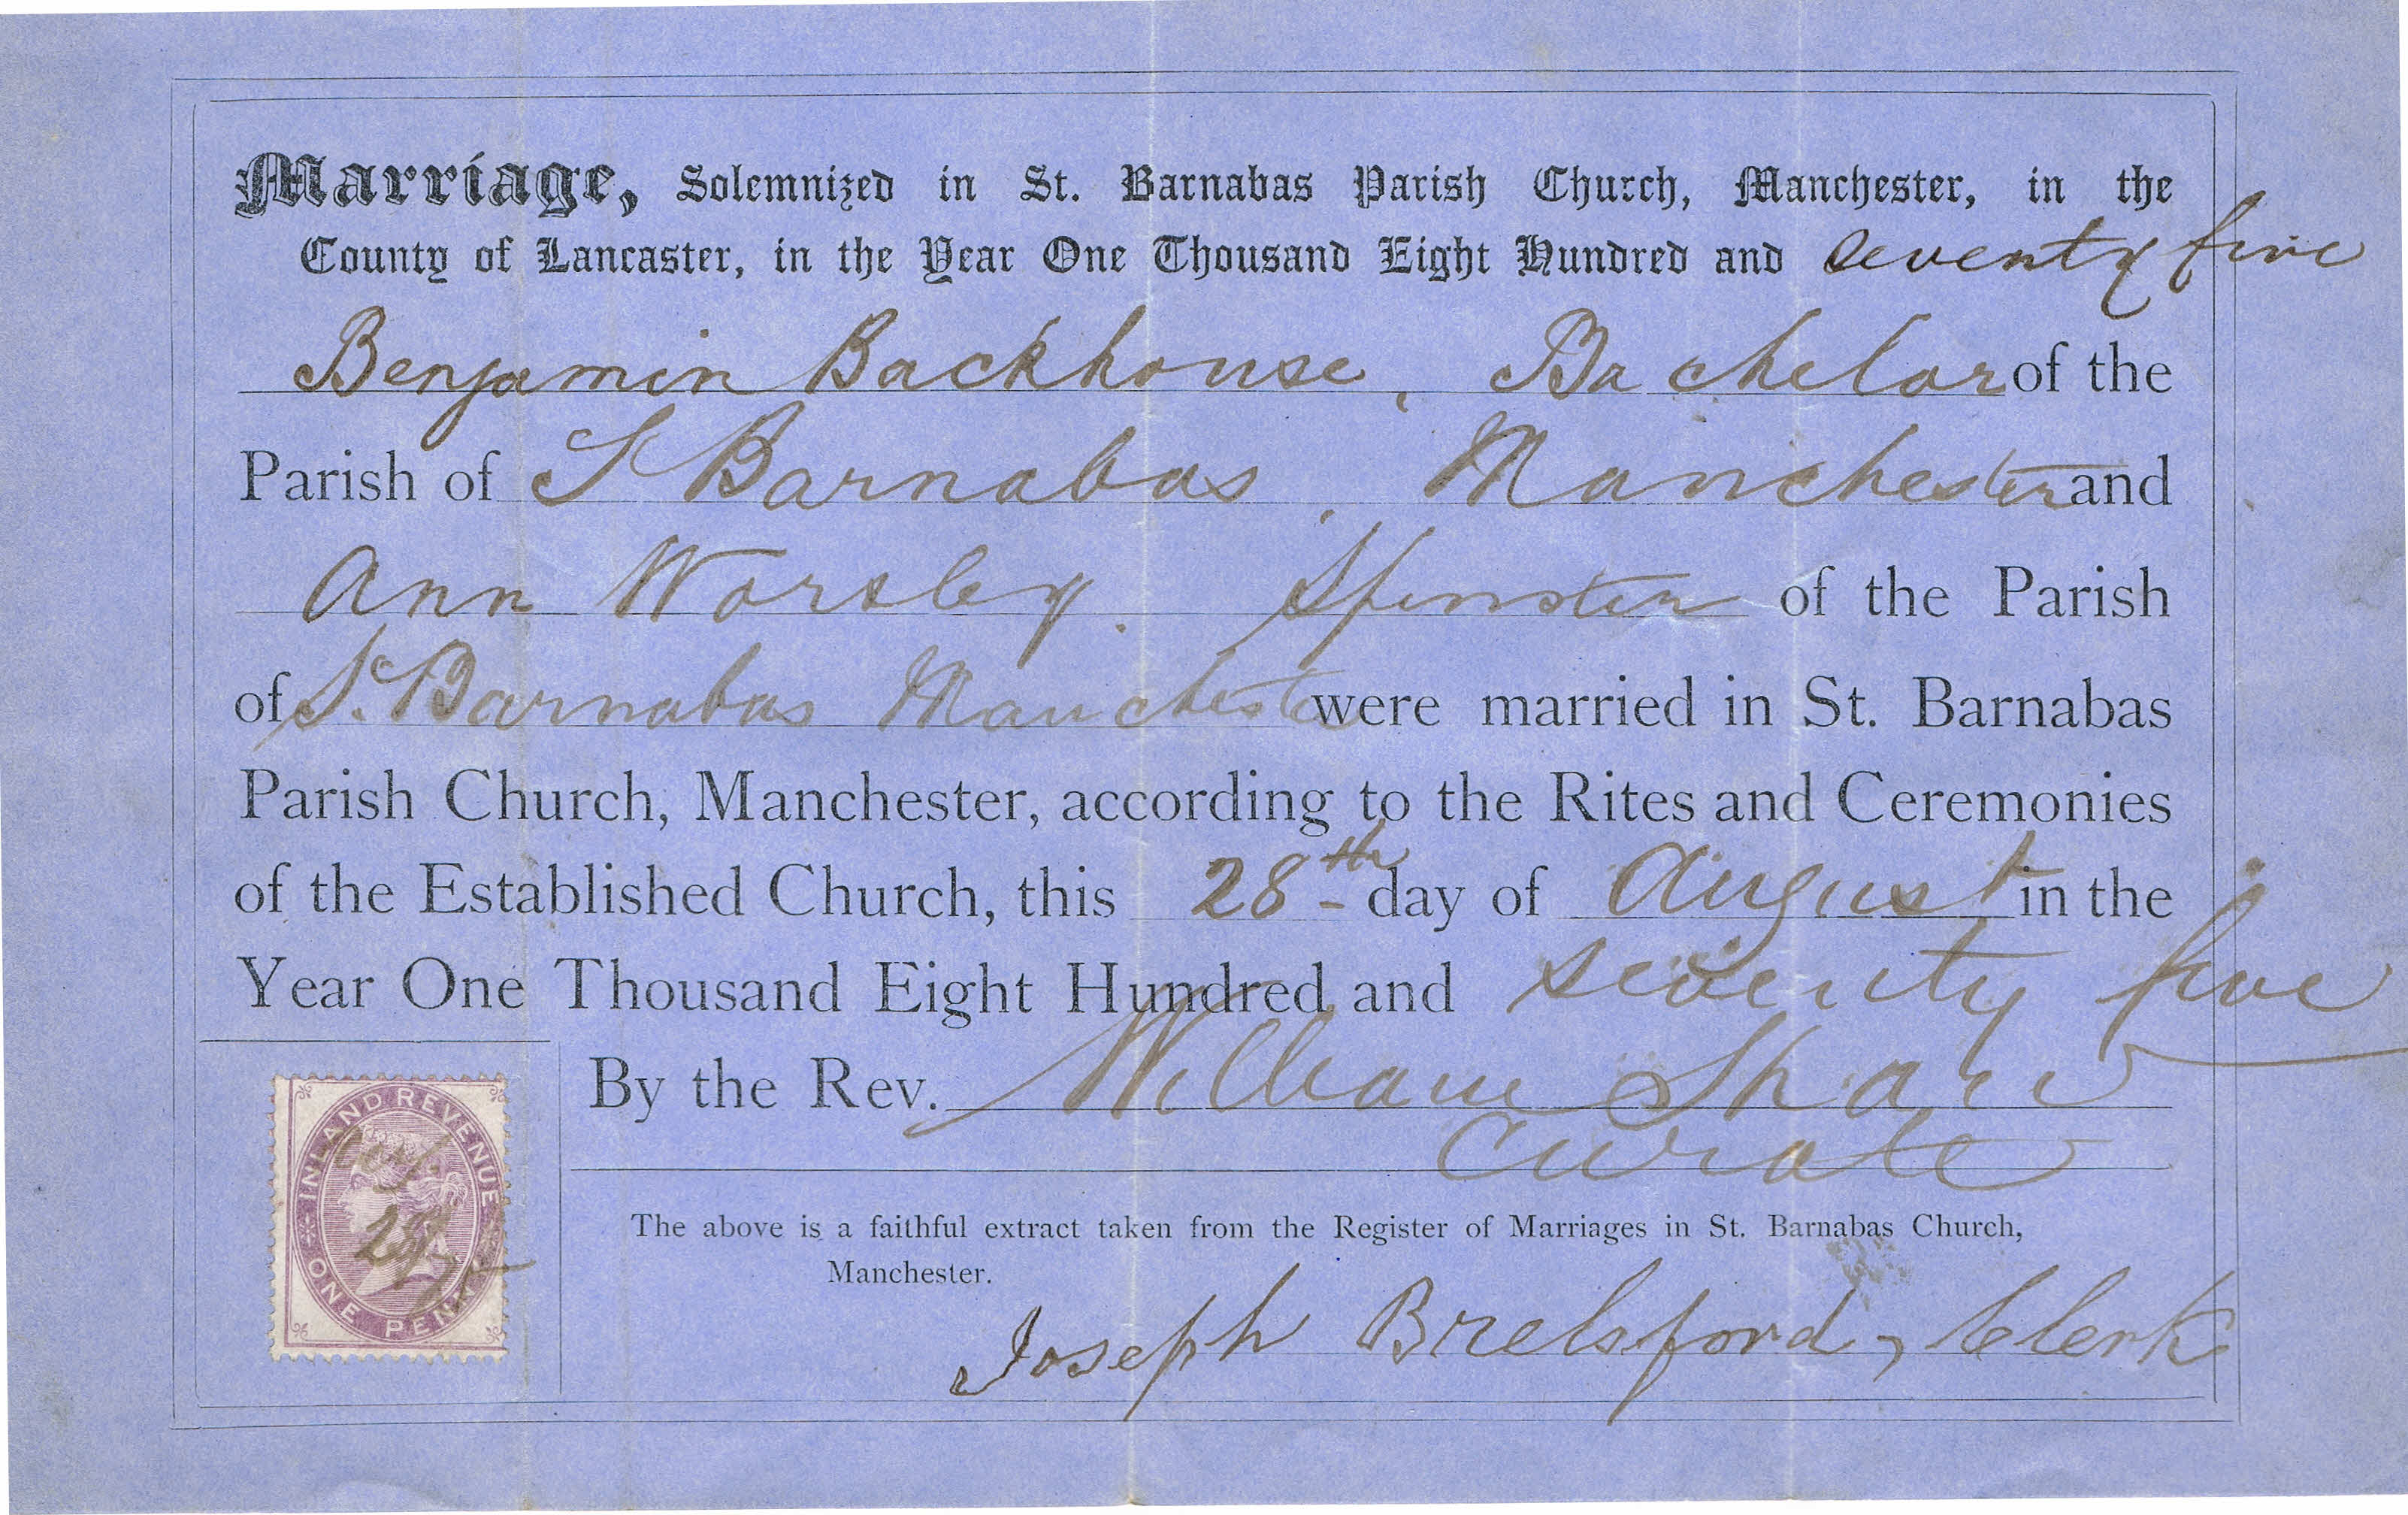 Marriage, Solemnized in St. Barnabas Parish Church, Manchester, in the
County of Lancaster, in the Year One Thousand Eight Hundred and Seventy five
Benjamin Backhouse, Bachelor of the
Parish of S Barnabas, Manchester and
Ann Worsley. Spinster of the Parish
of St. Barnabas Manchester were married in St. Barnabas
Parish Church, Manchester, according to the Rites and Ceremonies
of the Established Church, this 28th day of August in the
Year One Thousand Eight Hundred and seventy five
By the Rev. William Shaw
Curate
The above is a faithful extract taken from the Register of Marriages in St. Barnabas Church,
Manchester.
Joseph Brelsford, Clerk
INLAND REVENUE
ONE PENNY